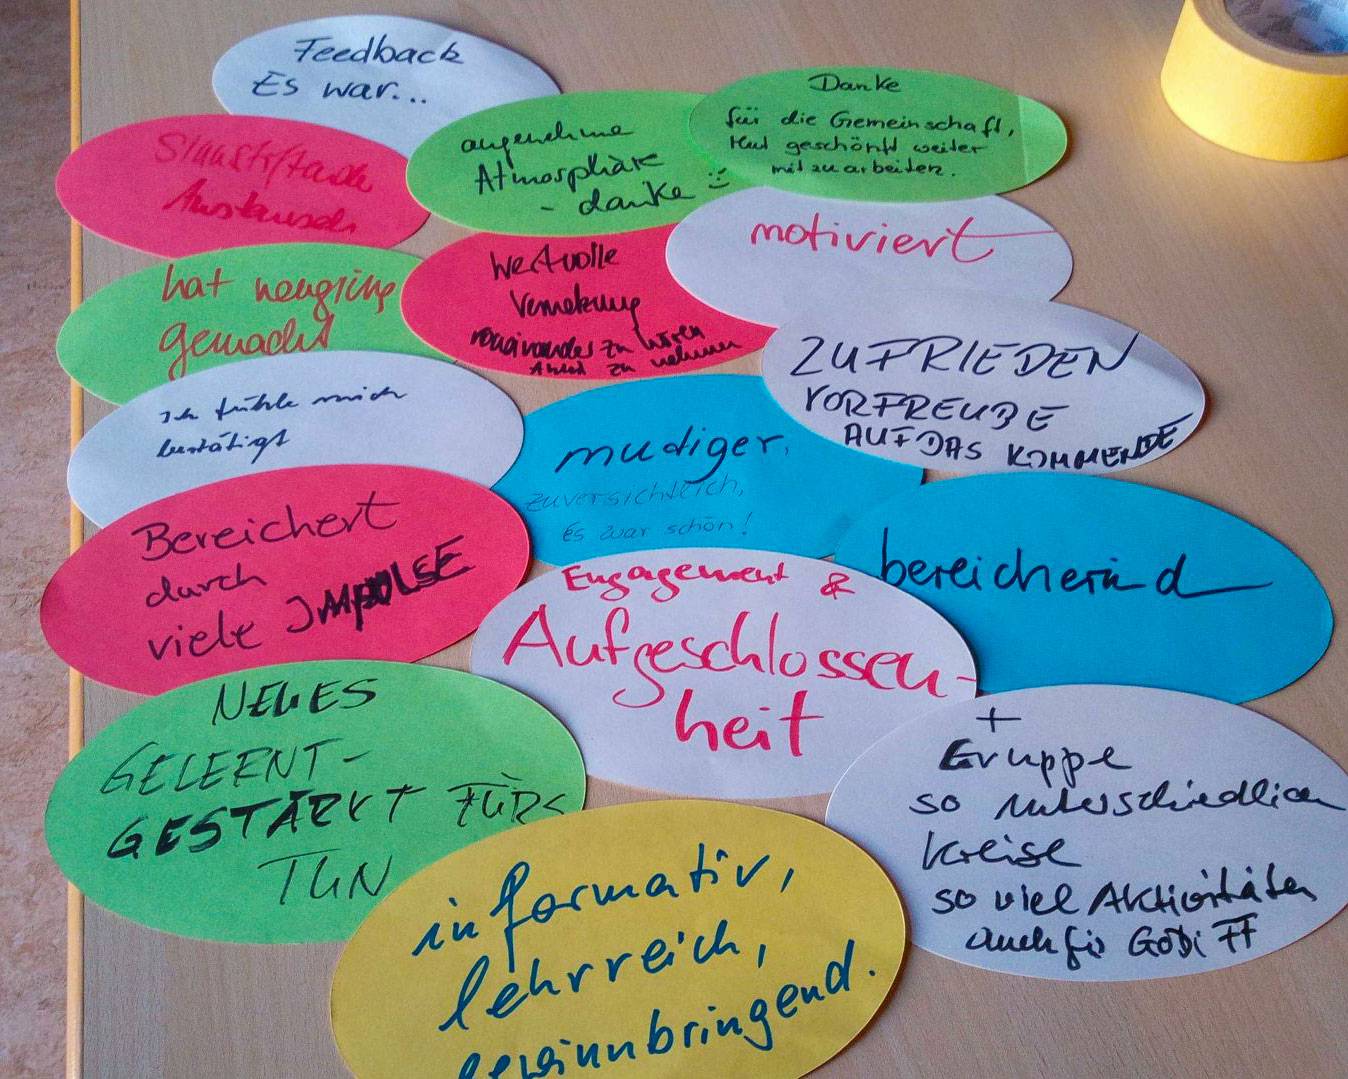 Feedback
Es war...
Danke
für die Gemeinschaft,
Mut geschöpft weiter
mitzuarbeiten.
angenehme
Atmosphäre
- danke :)
Sinnstiftende
Austausch
motiviert
Wertvolle
Vernetzung
voneinander zu hören
zu nehmen
hat neugierig
gemacht
ZUFRIEDEN
VORFREUDE
AUF DAS KOMMENDE
Ich fühle mich
bestätigt
mudiger,
zuversichtlich,
es war schön!
Bereichert
durch
viele IMPULSE
bereichernd
Engagement &
Aufgeschlossen-
heit
NEUES
GELERNT-
GESTÄRKT FÜRS
TUN
+
Gruppe
so unterschiedlich
Kreise
so viel Aktivitäten
auch für GoDi FF
informativ,
lehrreich,
gewinnbringend.